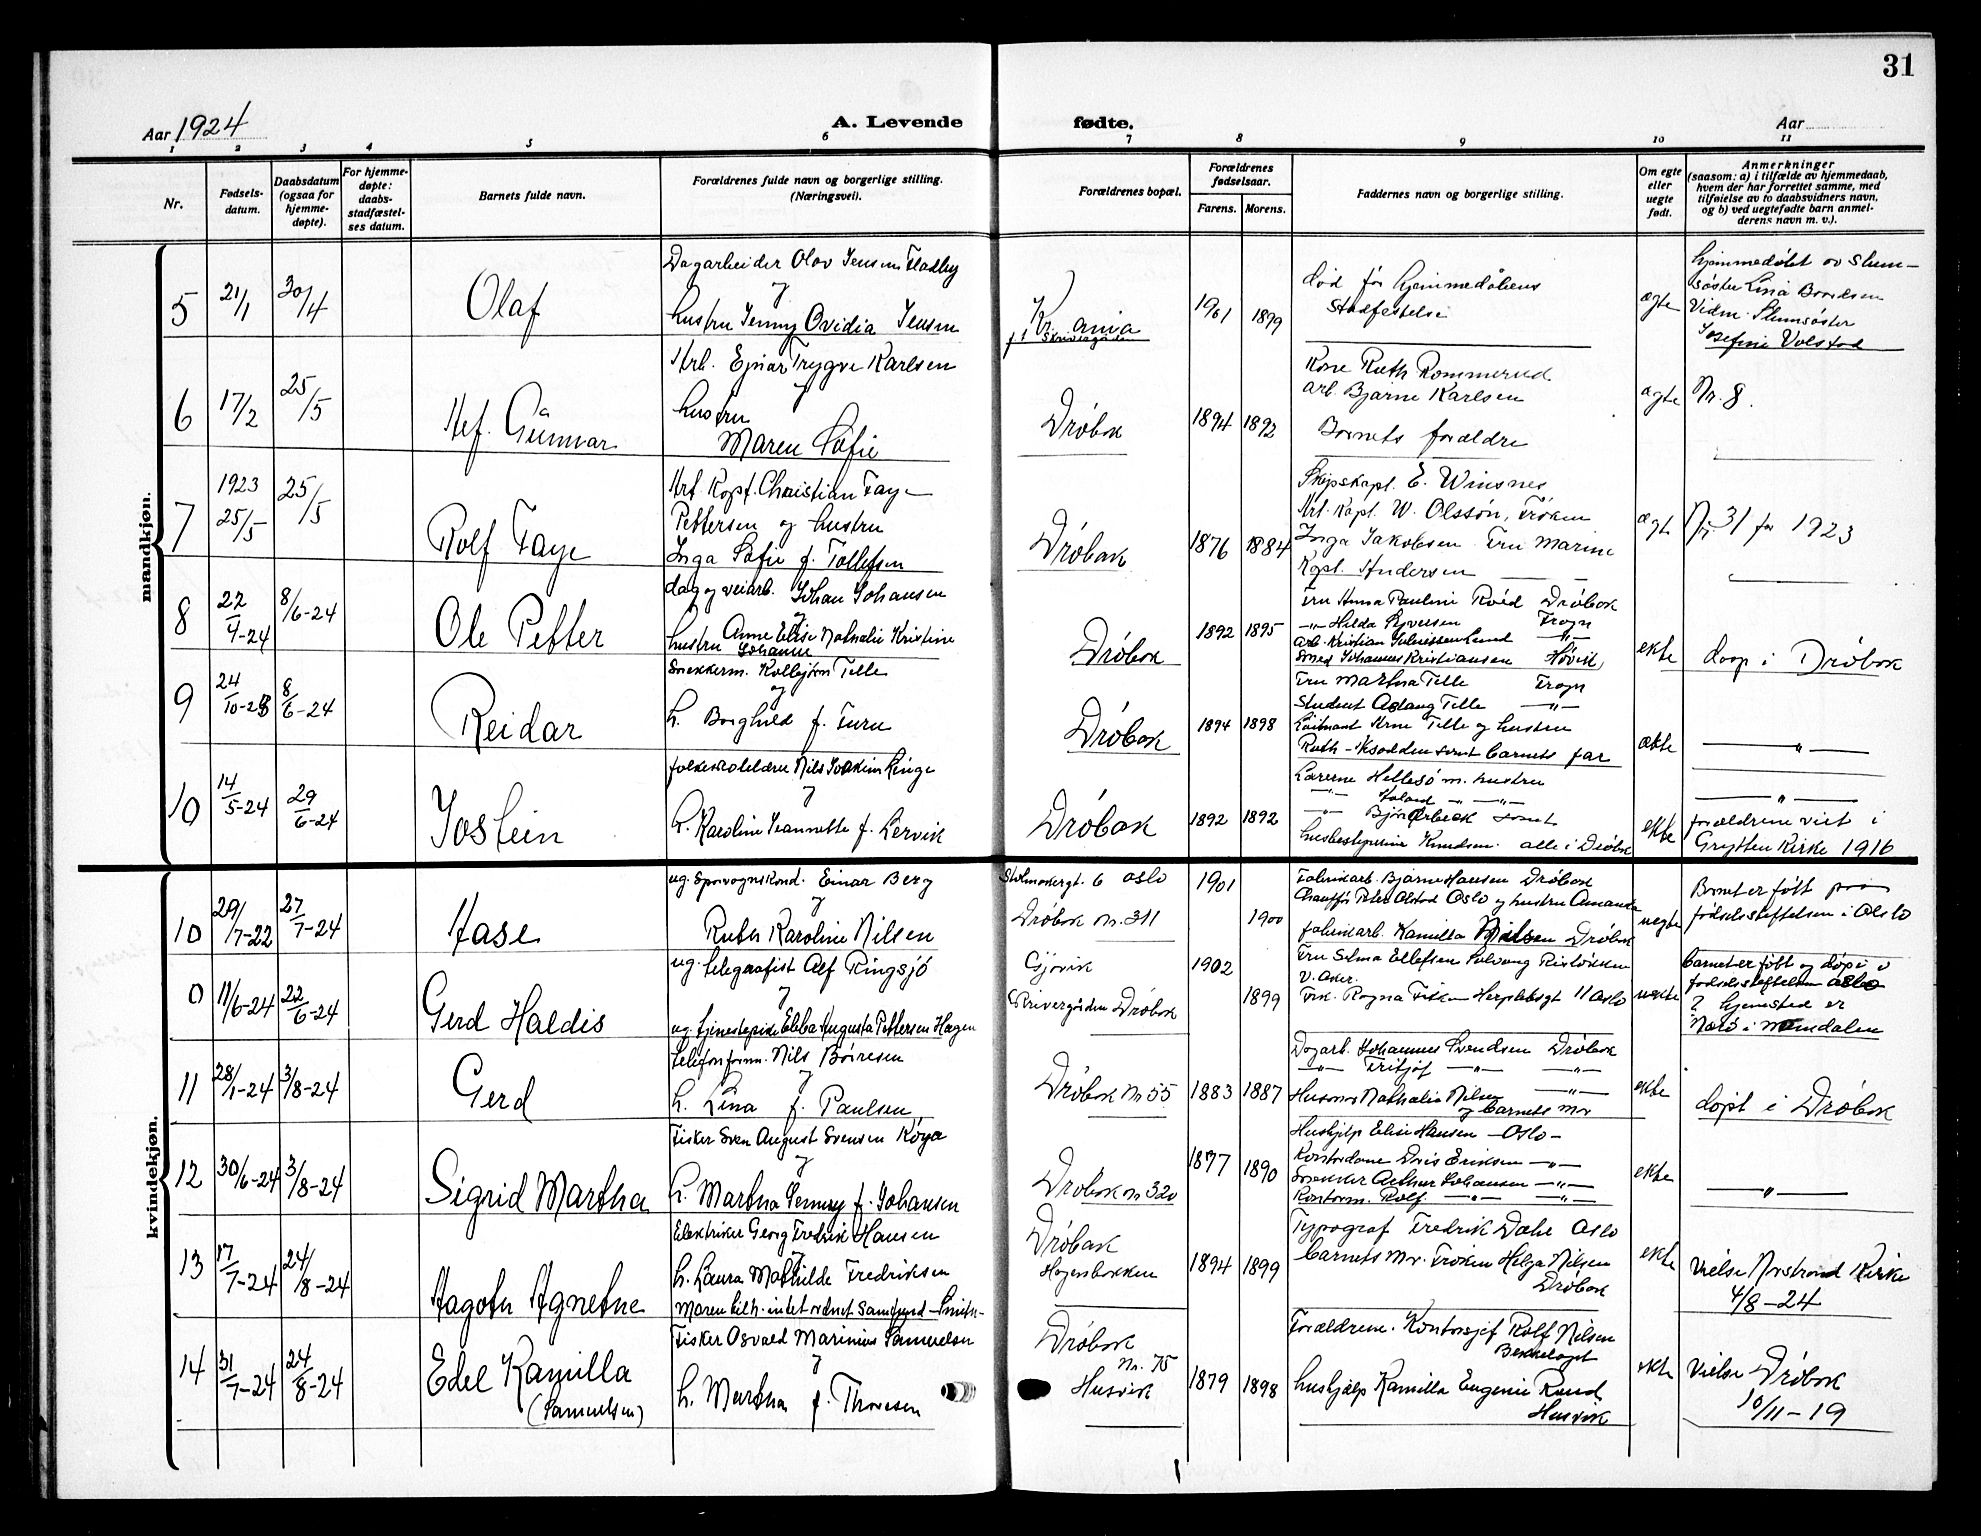 31
Aar 1924
A. Levende
fødte.
Aar
1 2 3 4 5 6 7 8 9 10 11
Nr.
Fødsels-
datum.
Daabsdatum
(ogsaa for
hjemme-
døpte).
For hjemme-
døpte:
daabs-
stadfæstel-
ses datum.
Barnets fulde navn.
Forældrenes fulde navn og borgerlige stilling.
(Næringsvei).
Forældrenes bopæl.
Forældrenes
fødselsaar.
Farens. Morens.
Faddernes navn og borgerlige stilling.
Om egte
eller
uegte
født.
Anmerkninger
(saasom: a) i tilfælde av hjemmedaab,
hvem der har forrettet samme, med
tilføielse av to daabsvidners navn,
og b) ved uegtefødte barn anmel-
derens navn m. v.).
mandkjøn.
5
21/1
30/4
Olaf
Dagarbeider Olav Jensen Fladby
og
hustru Jenny Ovidia Jensen
Kr.ania
1901
1899
død før hjemmedåbens
Stadfestelse
ægte
hjemmedøbt av Slum-
søster Lina Bordsen
Vidn. Slumsøster
Josefine Volstad
6
17/2
25/5
Alf. Gunnar
Arb. Ejnar Trygve Karlsen
og
hustru
Maren Sofie
Drøbak
1894
1892
Kone Ruth Kommerud
arb. Bjarne Karlsen
Barnets forældre
ægte
Nr. 8.
7
1923
25/5
25/5
Rolf Faye
Art. Kapt. Christian Faye
Pettersen og hustru
Inga Sofie f. Tollefsen
Drøbak
1876
1884
Skipskapt. E. Winsnes
Art. Kapt. W. Olssøn, Frøken
Inga Jakobsen Fru Marine
Kapt. Andersen
ægte
Nr 31 for 1923
8
22/4-24
8/6-24
Ole Petter
dag og veiarb. Johan Johansen
og
hustru Anne Elise Nathalie Kristine
Johanne
Drøbak
1892
1895
Fru Anna Pauline Roéd Drøbak
-"- Hilda Syversen Frogn
arb. Kristian Lund -"-
Smed Johannes Kristiansen Høvik
ekte
daap i Drøbak
9
24/10-23
8/6-24
Reidar
Snekkerm. Kolbjørn Telle
og
h. Borghild f. Furu
Drøbak
1894
1898
Fru Martha Telle Frogn
Student Aslaug Telle -"-
Løitnant Arne Telle og hustru
Ruth - samt barnets far
ækte
-"-
10
14/5-24
29/6-24
Jostein
folkeskolelærer Nils Joakim Linge
og
h. Karoline Jeannette f. Lervik
Drøbak
1892
1892
Lærerne Hellesø m. hustru
-"- Høland -"- -"-
-"- Bjørn Ørbæck samt
husbestyrerinne Knudsen. alle i Drøbak
ekte
-"-
forældrene viet i
Grytten Kirke 1916
kvindekjøn.
10
29/7-22
27/7-24
Aase
ug. Sporvognskond. Einar Berg
og
Ruth Karoline Nilsen
6 Oslo
Drøbak Nr. 311
1901
1900
Fabrikarb. Bjarne Hansen Drøbak
Chauffør Peter Olstad Oslo og hustru Amanda
fabrikarb. Kamilla Nilsen Drøbak
uegte
Barnet er født på
fødselsstiftelsen i Oslo
0
11/6-24
22/6-24
Gerd Haldis
ug. telegrafist Alf Ringsjø
og
ug. tjenestepike Ebba Augusta Pettersen Hagen
Gjøvik
Skrivergården Drøbak
1902
1899
Fru Selma Ellefsen Solvang Risløkken
v. Aker.
Frk. Ragna Herslebsgt 11 Oslo
uekte
barnet er født og døpt i
fødselsstiftelsen Oslo
? hjemsted er
Nærø i Namdalen
11
28/1-24
3/8-24
Gerd
telefonform. Nils Børresen
og
h. Lina f. Paulsen
Drøbak Nr. 55
1883
1887
Dagarb. Johannes Svendsen Drøbak
-"- Fritjof -"- -"-
Husmor Nathalie Nilsen -"-
og barnets mor
ekte
døpt i Drøbak
12
30/6-24
3/8-24
Sigrid Martha
Fisker Sven August Svensen Køya
og
h. Martha Jenny f. Johansen
Drøbak Nr. 320
1877
1890
Hushjelp Elise Hansen -Oslo-
Kontordame Doris Eriksen -"-
Snekker Arthur Johansen -"-
Kontorm. Rolf -"- -"-
ekte
-"-
13
17/7-24
24/8-24
Aagoth Agnethe
Elektriker Georg Fredrik Hansen
og
h. Laura Mathilde Fredriksen
Drøbak
1894
1899
Typograf Fredrik Dahl Oslo
barnets mor. Frøken Helga Nilsen
Drøbak
ekte
Vielse Nordstrand Kirke
4/8-24
14
31/7-24
24/8-24
Edel Kamilla
(Samuelsen)
Fisker Osvald Marinius Samuelsen
og
h. Martha f. Thoresen
Drøbak
Nr. 75
Husvik
1879
1898
Forældrene. Kontorsjef Rolf Nilsen
Bekkelaget
hushjælp Kamilla Eugenie Rund
Husvik
ekte
Vielse Drøbak
10/11-19